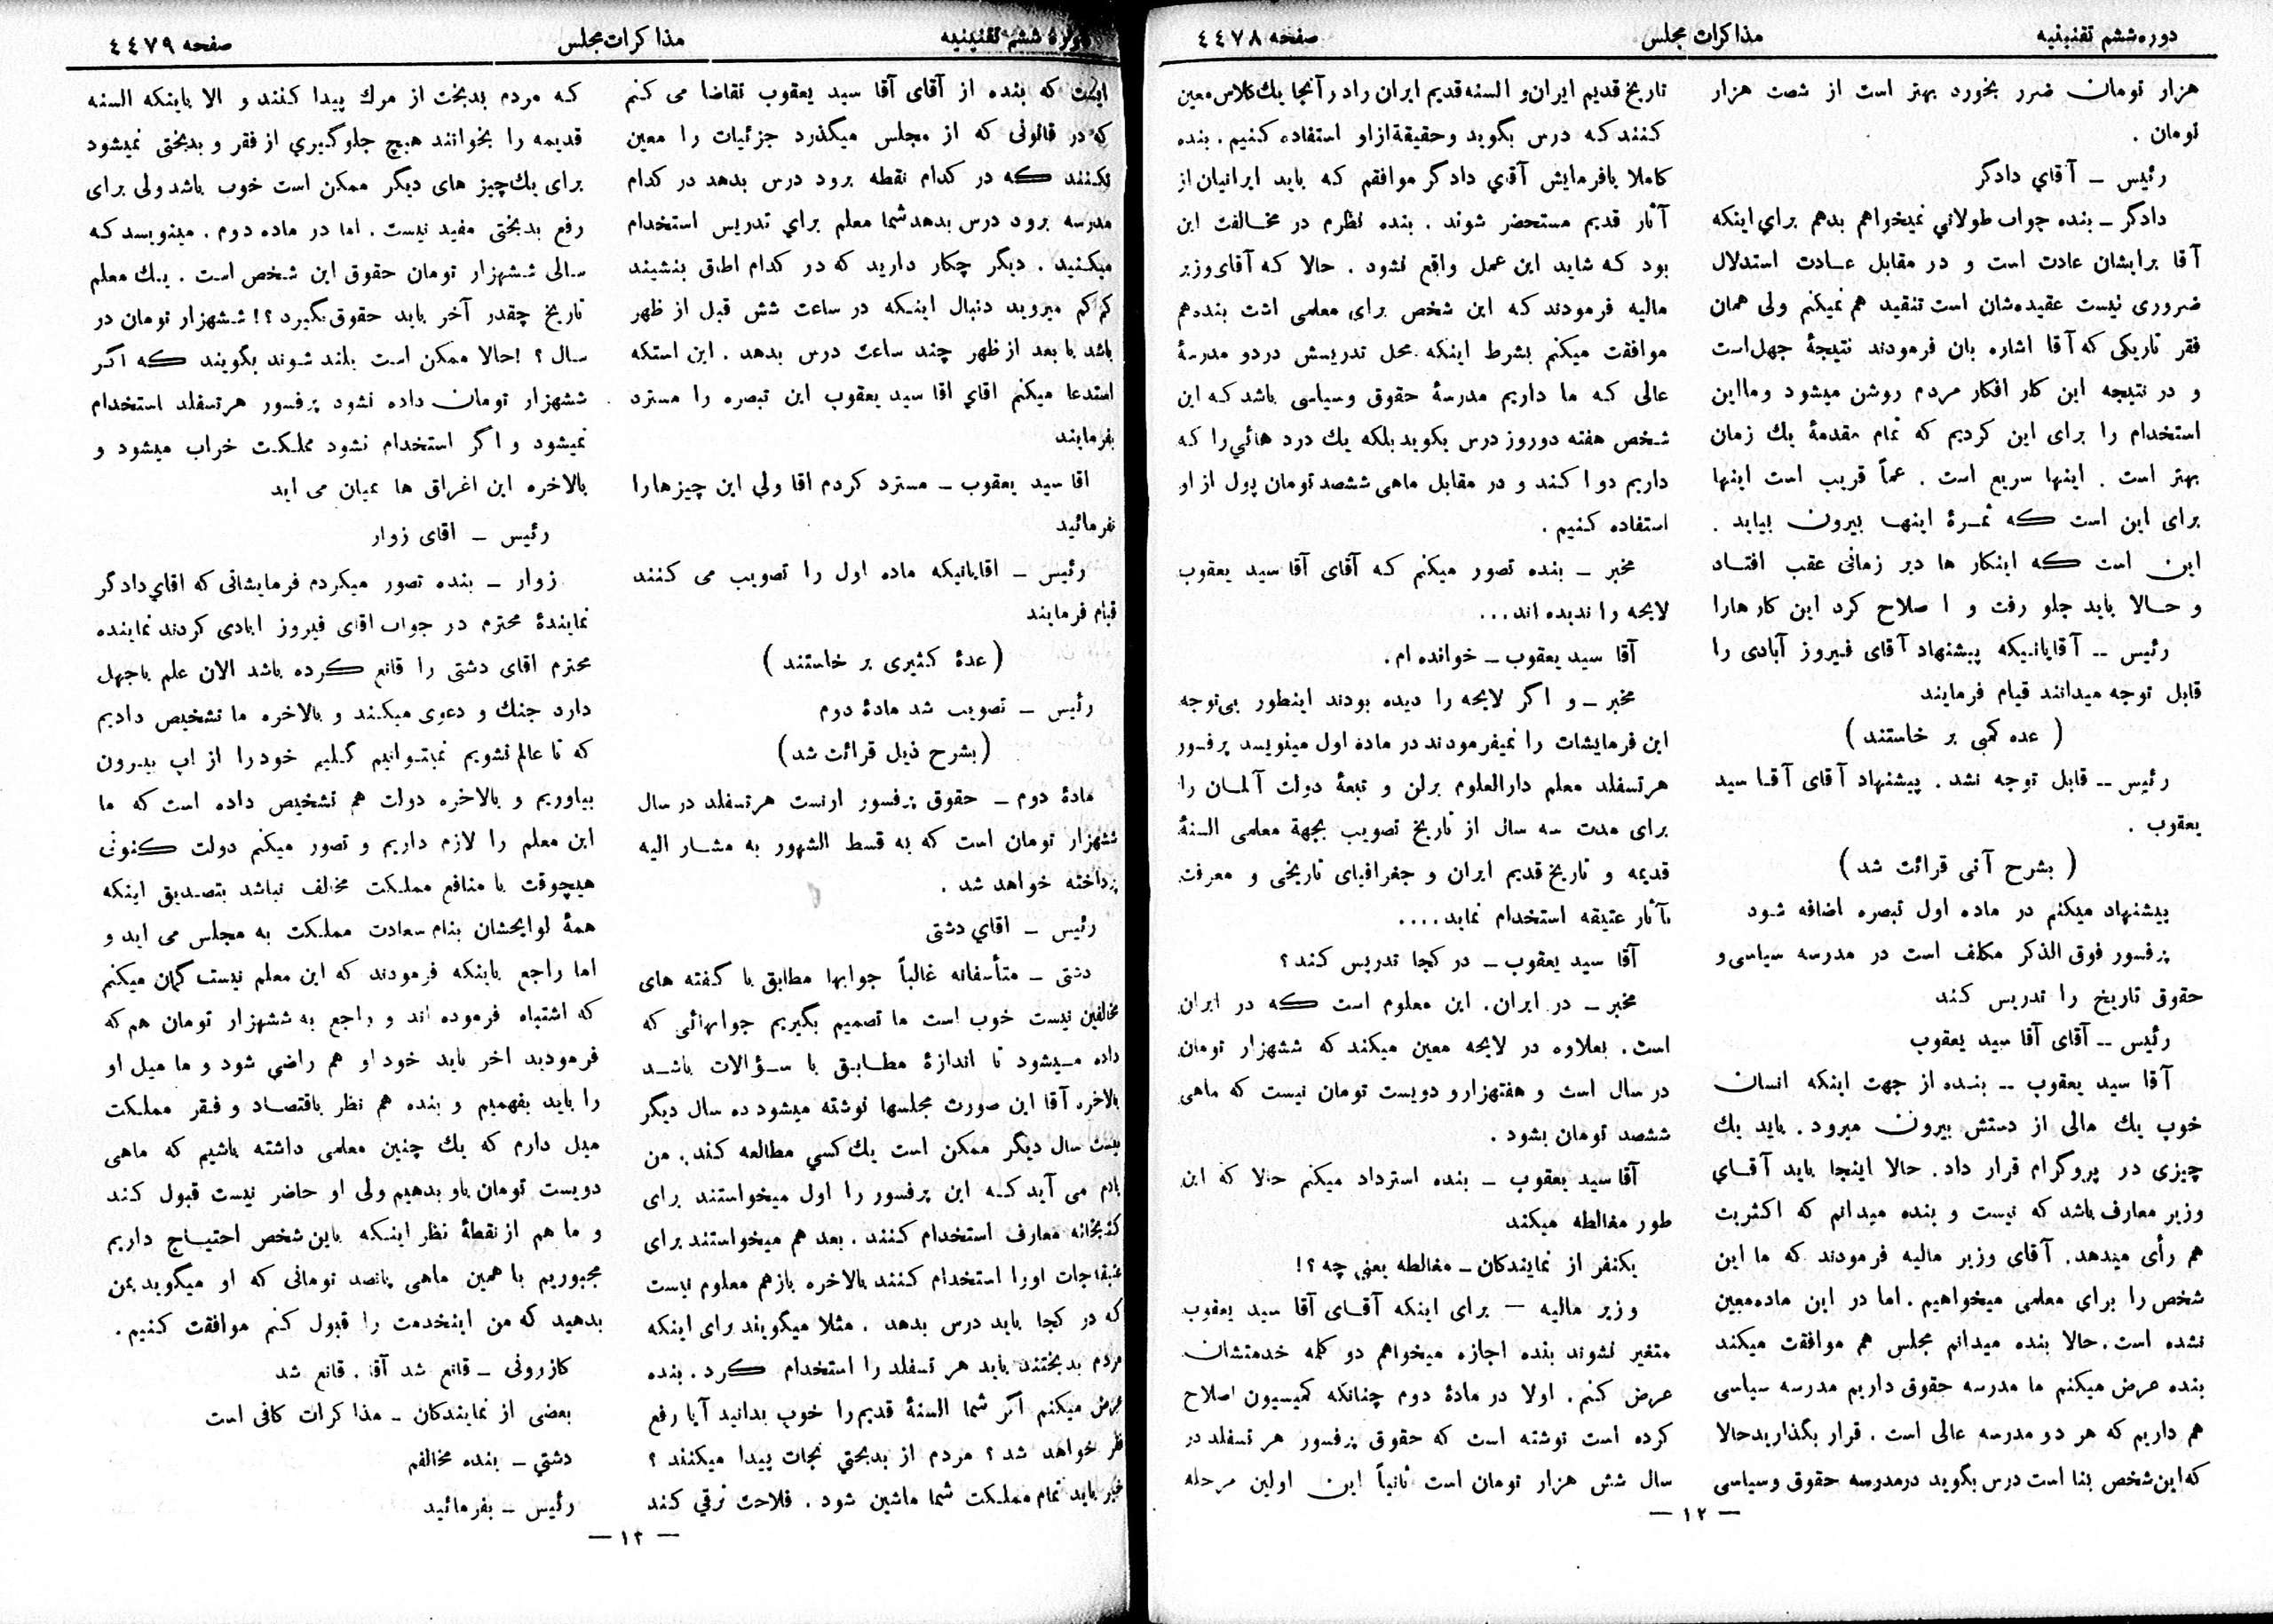 دوره ششم تقنینیه
مذاکرات مجلس
صفحه ٤٤٧٨
هزار تومان ضرر بخورد بهتر است از شصت هزار
تومان .
رئیس ــ آقای دادگر
دادگر ــ بنده جواب طولانی نمیخواهم بدهم برای اینکه
آقا برایشان عادت است و در مقابل عادت استدلال
ضروری نیست عقیده‌شان است تنقید هم نمیکنم ولی همان
فقر تاریکی که آقا اشاره بان فرمودند نتیجهٔ جهل است
و در نتیجه این کار افکار مردم روشن میشود وما این
استخدام را برای این کردیم که تمام مقدمهٔ یك زمان
بهتر است . اینها سریع است . عماً قریب است اینها
برای این است که ثمرهٔ اینها بیرون بیاید .
این است که اینکار ها دیر زمانی عقب افتاد
و حالا باید جلو رفت و اصلاح کرد این کارهارا
رئیس ــ آقایانیکه پیشنهاد آقای فیروز آبادی را
قابل توجه میدانند قیام فرمایند
( عده کمی بر خاستند )
رئیس ــ قابل توجه نشد . پیشنهاد آقای آقا سید
یعقوب .
( بشرح آتی قرائت شد )
پیشنهاد میکنم در ماده اول تبصره اضافه شود
پرفسور فوق الذکر مکلف است در مدرسه سیاسی و
حقوق تاریخ را تدریس کند
رئیس ــ آقای آقا سید یعقوب
آقا سید یعقوب ــ بنده از جهت اینکه انسان
خوب یك مالی از دستش بیرون میرود . باید یك
چیزی در پروگرام قرار داد . حالا اینجا باید آقای
وزیر معارف باشد که نیست و بنده میدانم که اکثریت
هم رأی میدهد . آقای وزیر مالیه فرمودند که ما این
شخص را برای معلمی میخواهیم . اما در این ماده معین
نشده است . حالا بنده میدانم مجلس هم موافقت میکند
بنده عرض میکنم ما مدرسه حقوق داریم مدرسه سیاسی
هم داریم که هر دو مدرسه عالی است . قرار بگذارید حالا
که این شخص بنا است درس بگوید در مدرسه حقوق وسیاسی
تاریخ قدیم ایران و السنه قدیم ایران را در آنجا یك کلاس معین
کنند که درس بگوید و حقیقة از او استفاده کنیم . بنده
کاملا بافرمایش آقای دادگر موافقم که باید ایرانیان از
آثار قدیم مستحضر شوند . بنده نظرم در مخالفت این
بود که شاید این عمل واقع نشود . حالا که آقای وزیر
مالیه فرمودند که این شخص برای معلمی است بنده هم
موافقت میکنم بشرط اینکه محل تدریسش در دو مدرسهٔ
عالی که ما داریم مدرسهٔ حقوق و سیاسی باشد که این
شخص هفته دوروز درس بگوید بلکه یك درد هائی را که
داریم دوا کند و در مقابل ماهی ششصد تومان پول از او
استفاده کنیم .
مخبر ــ بنده تصور میکنم که آقای آقا سید یعقوب
لایحه را ندیده اند ...
آقا سید یعقوب ــ خوانده ام .
مخبر ــ و اگر لایحه را دیده بودند اینطور بی‌توجه
این فرمایشات را نمیفرمودند در ماده اول مینویسد پرفسور
هرتسفلد معلم دارالعلوم برلن و تبعهٔ دولت آلمان را
برای مدت سه سال از تاریخ تصویب بجهة معلمی السنهٔ
قدیمه و تاریخ قدیم ایران و جغرافیای تاریخی و معرفت
بآثار عتیقه استخدام نماید ....
آقا سید یعقوب ــ در کجا تدریس کند ؟
مخبر ــ در ایران . این معلوم است که در ایران
است . بعلاوه در لایحه معین میکند که ششهزار تومان
در سال است و هفتهزارو دویست تومان نیست که ماهی
ششصد تومان بشود .
آقا سید یعقوب ــ بنده استرداد میکنم حالا که این
طور مغالطه میکند
یکنفر از نمایندگان ــ مغالطه یعنی چه ؟!
وزیر مالیه — برای اینکه آقای آقا سید یعقوب
متغیر نشوند بنده اجازه میخواهم دو کلمه خدمتشان
عرض کنم . اولا در مادهٔ دوم چنانکه کمیسیون اصلاح
کرده است نوشته است که حقوق پرفسور هر تسفلد در
سال شش هزار تومان است ثانیاً این اولین مرحله
— ١٢ —
دوره ششم تقنینیه
مذاکرات مجلس
صفحه ٤٤٧٩
است که بنده از آقای آقا سید یعقوب تقاضا می کنم
که در قانونی که از مجلس میگذرد جزئیات را معین
نکنند که در کدام نقطه برود درس بدهد در کدام
مدرسه برود درس بدهد شما معلم برای تدریس استخدام
میکنید . دیگر چکار دارید که در کدام اطاق بنشیند
کم کم میروید دنبال اینکه در ساعت شش قبل از ظهر
باشد یا بعد از ظهر چند ساعت درس بدهد . این استکه
استدعا میکنم اقای اقا سید یعقوب این تبصره را مسترد
بفرمایند
اقا سید یعقوب ــ مسترد کردم اقا ولی این چیزهارا
نفرمائید
رئیس ــ اقایانیکه ماده اول را تصویب می کنند
قیام فرمایند
( عدهٔ کثیری بر خاستند )
رئیس ــ تصویب شد مادهٔ دوم
( بشرح ذیل قرائت شد )
مادهٔ دوم ــ حقوق پرفسور ارنست هرتسفلد در سال
ششهزار تومان است که به قسط الشهور به مشار الیه
پرداخته خواهد شد .
رئیس ــ اقای دشتی
دشتی ــ متأسفانه غالباً جوابها مطابق با گفته های
مخالفین نیست خوب است ما تصمیم بگیریم جوابهائی که
داده میشود تا اندازهٔ مطابق با سؤالات باشد
بالاخره آقا این صورت مجلسها نوشته میشود ده سال دیگر
بیست سال دیگر ممکن است یك کسی مطالعه کند . من
یادم می آید که این پرفسور را اول میخواستند برای
کتابخانه معارف استخدام کنند . بعد هم میخواستند برای
عتیقه‌جات اورا استخدام کنند بالاخره بازهم معلوم نیست
که در کجا باید درس بدهد . مثلا میگویند برای اینکه
مردم بدبختند باید هر تسفلد را استخدام کرد . بنده
عرض میکنم اگر شما السنهٔ قدیم را خوب بدانید آیا رفع
فقر خواهد شد ؟ مردم از بدبختی نجات پیدا میکنند ؟
خیر باید تمام مملکت شما ماشین شود . فلاحت ترقی کند
که مردم بدبخت از مرك پیدا کنند و الا باینکه السنه
قدیمه را بخوانند هیچ جلوگیری از فقر و بدبختی نمیشود
برای یك چیز های دیگر ممکن است خوب باشد ولی برای
رفع بدبختی مفید نیست . اما در ماده دوم . مینویسد که
سالی ششهزار تومان حقوق این شخص است . یك معلم
تاریخ چقدر آخر باید حقوق بگیرد ؟! ششهزار تومان در
سال ؟ ! حالا ممکن است بلند شوند بگویند که اگر
ششهزار تومان داده نشود پرفسور هرتسفلد استخدام
نمیشود و اگر استخدام نشود مملکت خراب میشود و
بالاخره این اغراق ها بمیان می اید
رئیس ــ اقای زوار
زوار ــ بنده تصور میکردم فرمایشاتی که اقای دادگر
نمایندهٔ محترم در جواب اقای فیروز ابادی کردند نماینده
محترم اقای دشتی را قانع کرده باشد الان علم باجهل
دارد جنك و دعوی میکند و بالاخره ما تشخیص دادیم
که تا عالم نشویم نمیتوانیم گلیم خودرا از اب بیرون
بیاوریم و بالاخره دولت هم تشخیص داده است که ما
این معلم را لازم داریم و تصور میکنم دولت کنونی
هیچوقت با منافع مملکت مخالف نباشد بتصدیق اینکه
همهٔ لوایحشان بنام سعادت مملکت به مجلس می اید و
اما راجع باینکه فرمودند که این معلم نیست گمان میکنم
که اشتباه فرموده اند و راجع به ششهزار تومان هم که
فرمودید اخر باید خود او هم راضی شود و ما میل او
را باید بفهمیم و بنده هم نظر باقتصاد و فقر مملکت
میل دارم که یك چنین معلمی داشته باشیم که ماهی
دویست تومان باو بدهیم ولی او حاضر نیست قبول کند
و ما هم از نقطهٔ نظر اینکه باین شخص احتیاج داریم
مجبوریم با همین ماهی پانصد تومانی که او میگوید بمن
بدهید که من اینخدمت را قبول کنم موافقت کنیم .
کازرونی ــ قانع شد آقا . قانع شد
بعضی از نمایندگان ــ مذاکرات کافی است
دشتی ــ بنده مخالفم
رئیس ــ بفرمائید
— ١٣ —